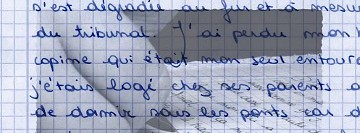 s'est dégradée au fur et à mesure
du tribunal. J'ai perdu mon
copine qui était mon seul entoura
j'étais logé chez ses parents
de dormir sous les ponts car